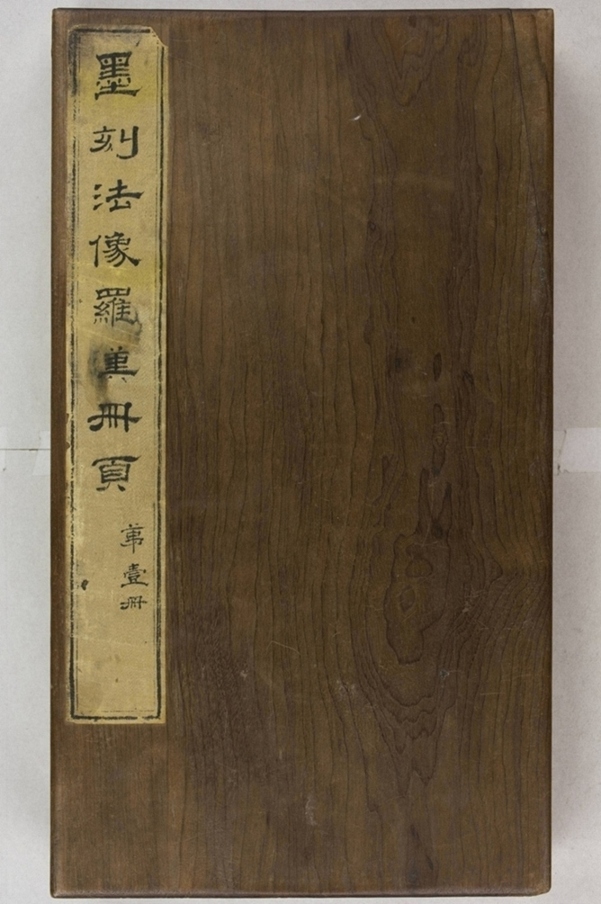 墨刻法像羅漢冊頁
第壹冊